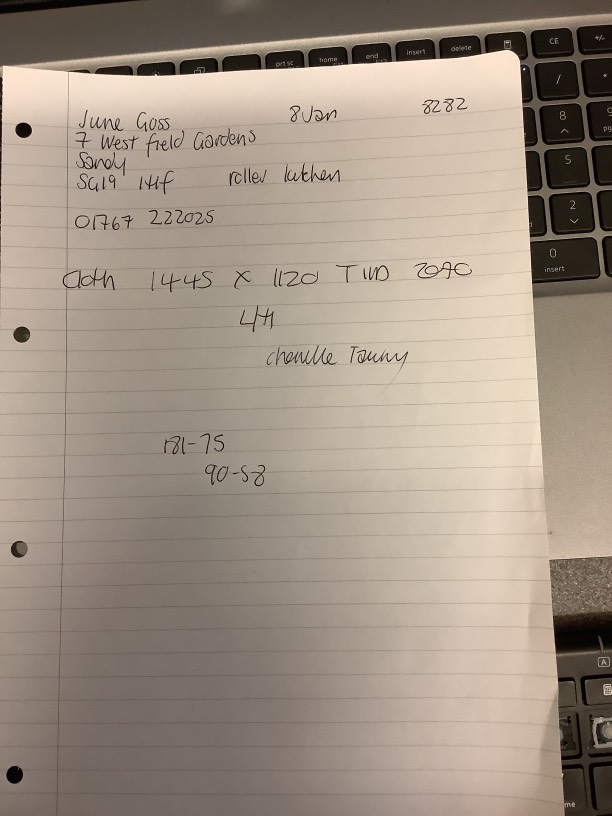 June Goss 8 Jan 8282
7 West field Gardens
Sandy
SG19 roller kitchen
01767 222025
Cloth 1445 X 1120
L/H
chenille Tawny
181-75
90-58
prt sc home end insert delete CE +/-
/ *
8
5
2
0
insert
A